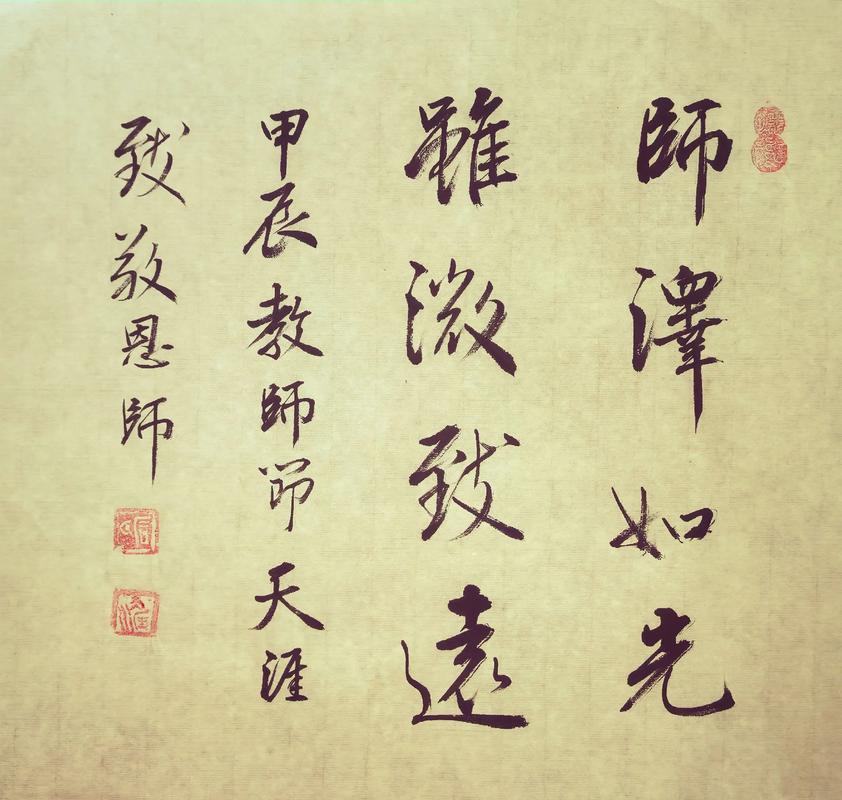 師澤如光
雖微致遠
甲辰教師節天涯
致敬恩師